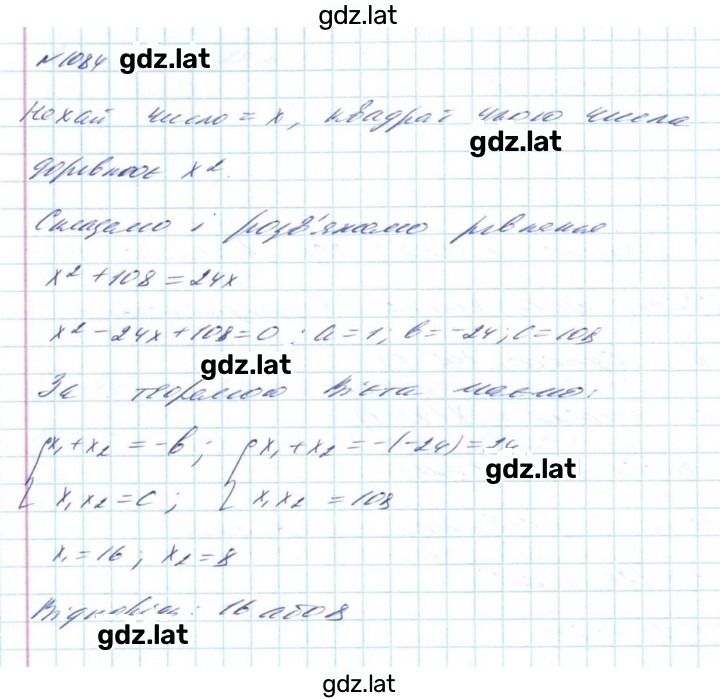 gdz.lat
№1084 gdz.lat
Нехай число = x, квадрат цього числа
gdz.lat
дорівнює x².
Складемо і розв'яжемо рівняння
x² + 108 = 24x
x² - 24x + 108 = 0 ; a = 1; b = -24; c = 108
gdz.lat
За теоремою Вієта маємо:
{ x₁ + x₂ = -b ; { x₁ + x₂ = -(-24) = 24
gdz.lat
x₁ x₂ = c ; x₁ x₂ = 108
x₁ = 16 ; x₂ = 8
Відповідь: 16 або 8
gdz.lat
gdz.lat